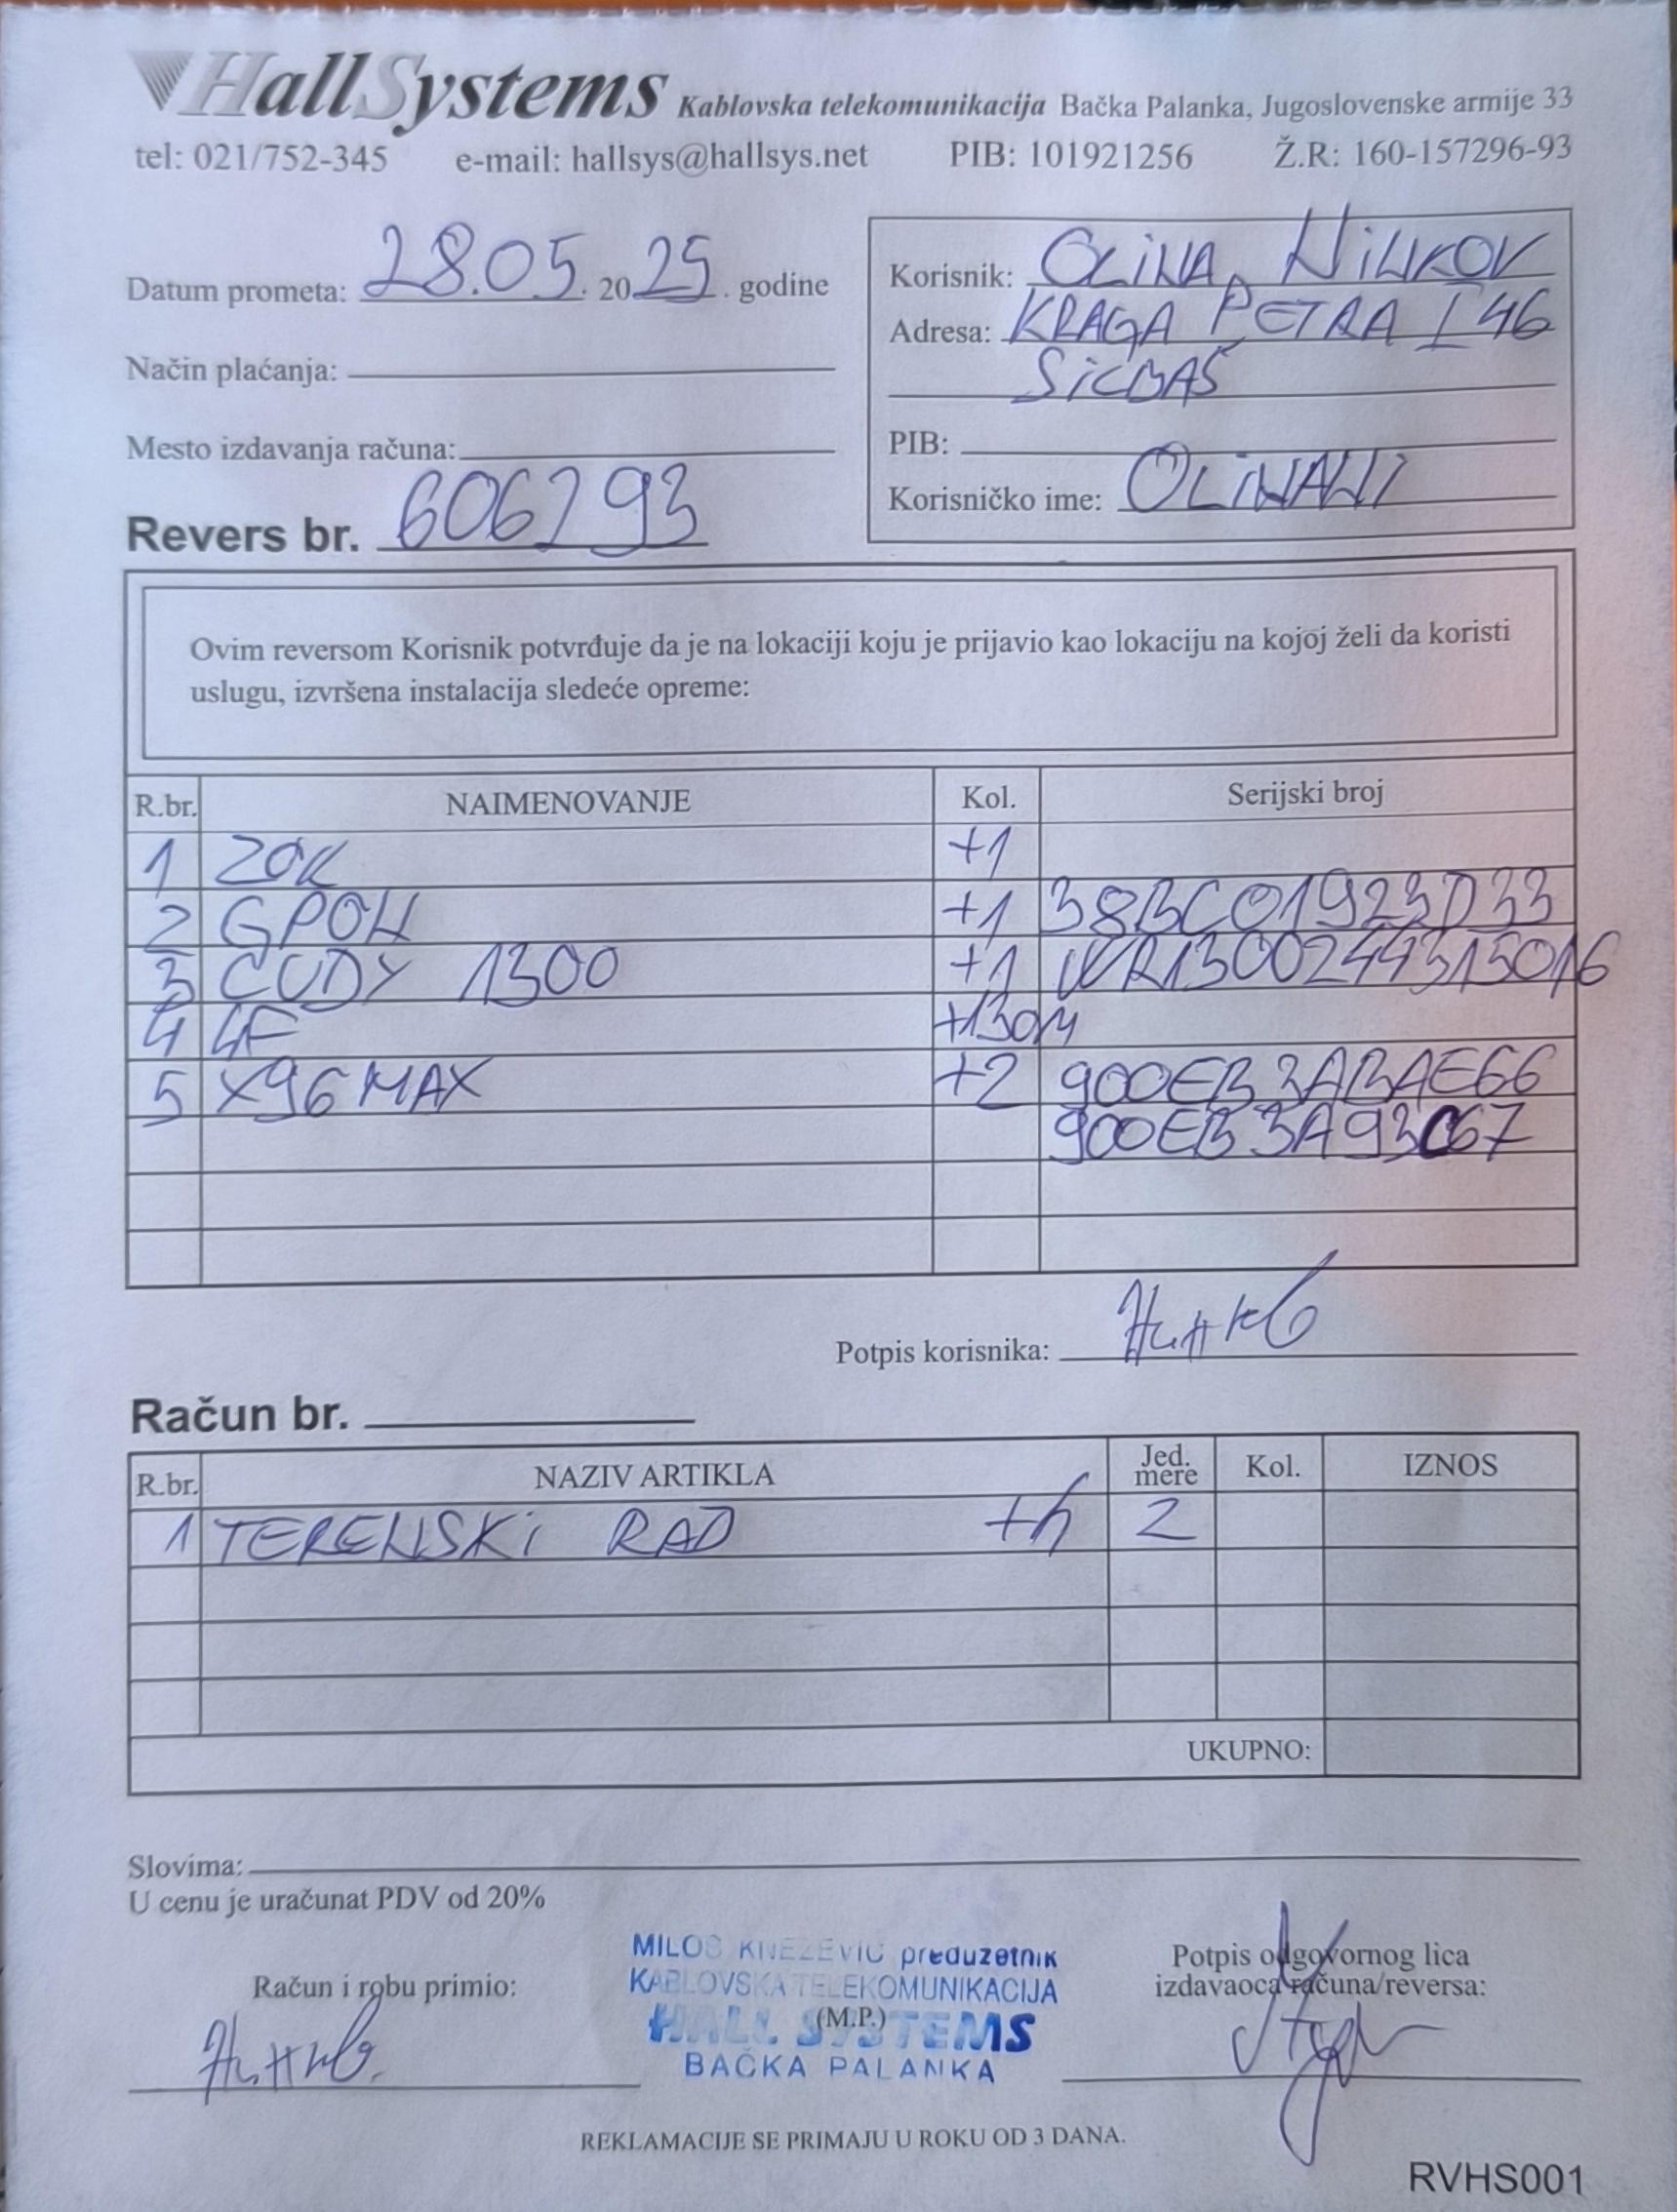 HallSystems Kablovska telekomunikacija Bačka Palanka, Jugoslovenske armije 33
tel: 021/752-345 e-mail: hallsys@hallsys.net PIB: 101921256 Ž.R: 160-157296-93
Datum prometa: 28.05. 2025. godine
Način plaćanja:
Mesto izdavanja računa:
Revers br. 606293
Korisnik: OLINA NINKOV
Adresa: KRAGA PETRA I 46
SILBAŠ
PIB:
Korisničko ime: OLINANI
Ovim reversom Korisnik potvrđuje da je na lokaciji koju je prijavio kao lokaciju na kojoj želi da koristi
uslugu, izvršena instalacija sledeće opreme:
R.br. NAIMENOVANJE Kol. Serijski broj
1 ZOK +1
2 GPON +1 38BC01923D33
3 CUDY 1300 +1 WR1300244315016
4 4F +130M
5 X96 MAX +2 900EB3ABAE66
900EB3A93C67
Potpis korisnika: Нинков
Račun br.
R.br. NAZIV ARTIKLA Jed. mere Kol. IZNOS
1 TERENSKI RAD +h 2
UKUPNO:
Slovima:
U cenu je uračunat PDV od 20%
Račun i robu primio:
Нинков
MILOŠ KNEŽEVIĆ preduzetnik
KABLOVSKA TELEKOMUNIKACIJA
(M.P.)
HALL SYSTEMS
BAČKA PALANKA
Potpis odgovornog lica
izdavaoca računa/reversa:
REKLAMACIJE SE PRIMAJU U ROKU OD 3 DANA.
RVHS001